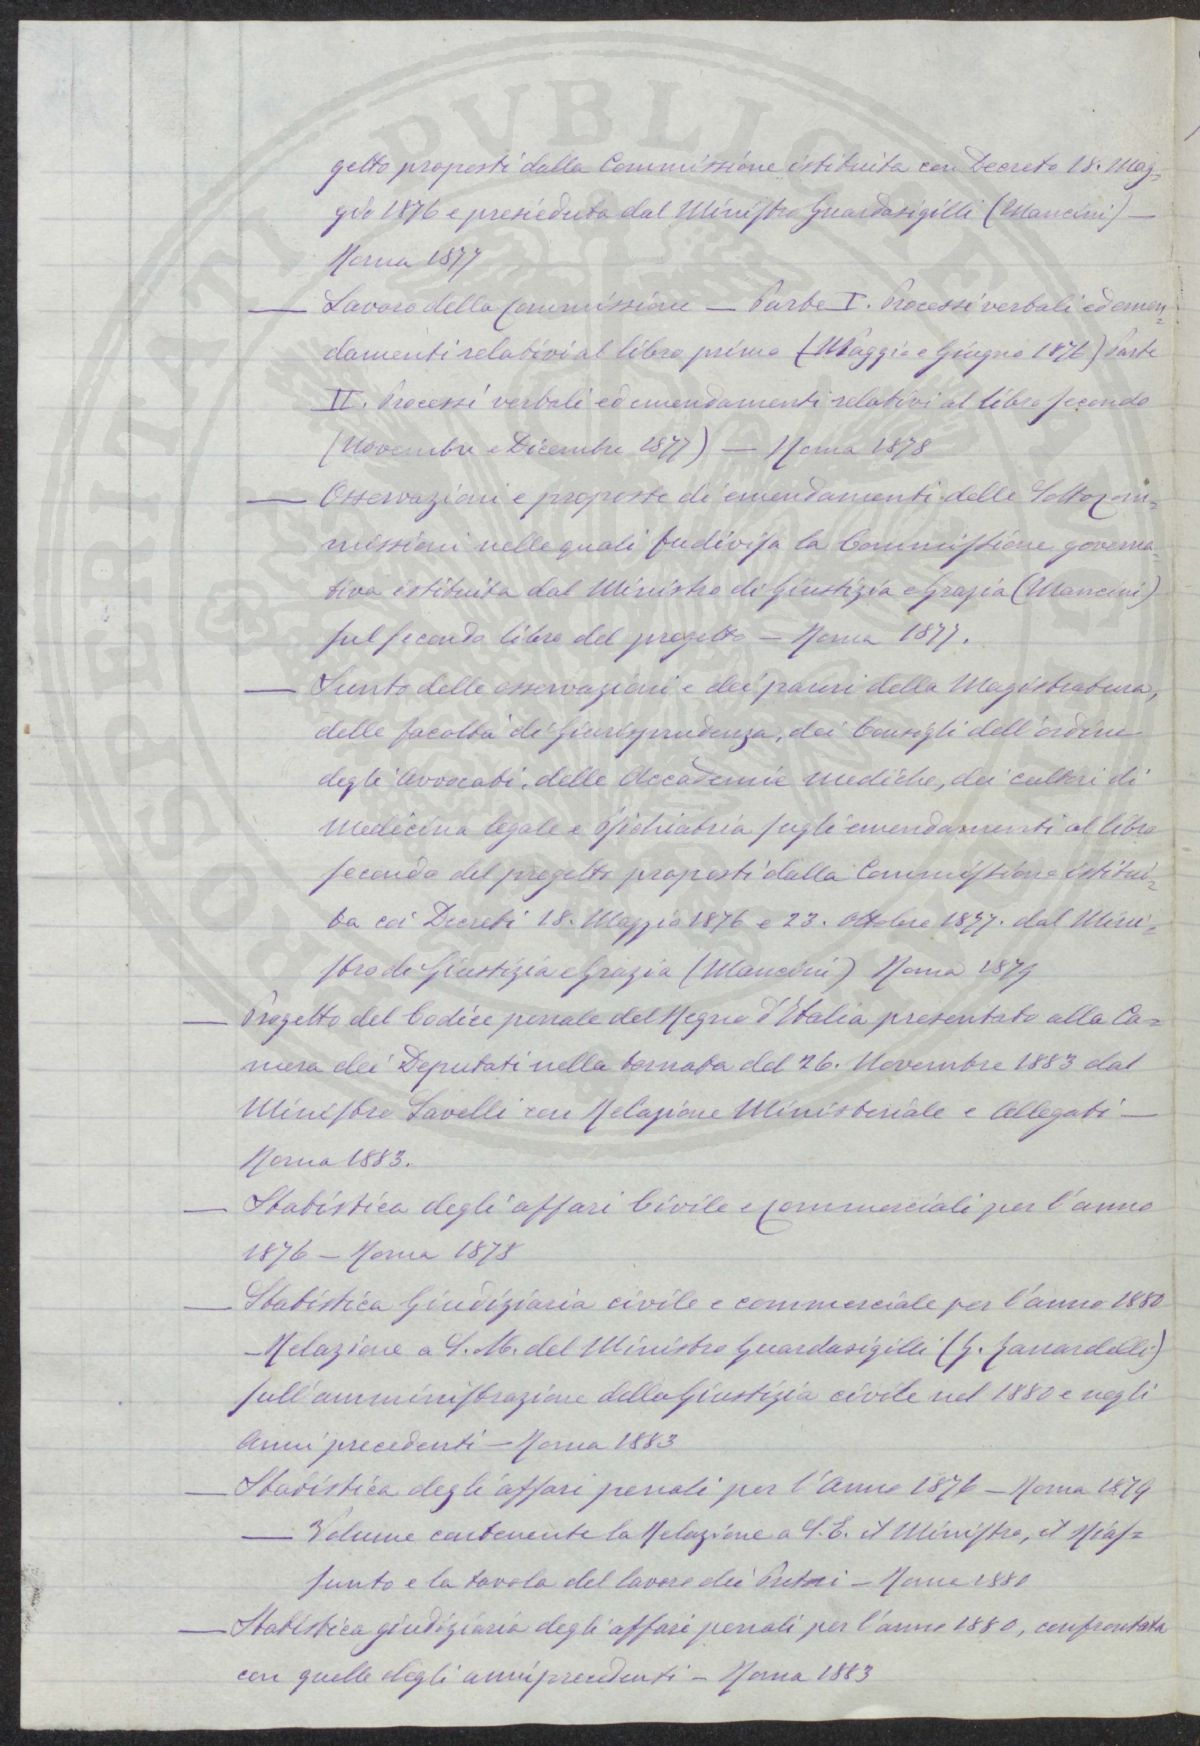 getto proposti dalla Commissione istituita con Decreto 18. Mag=
gio 1876 e presieduta dal Ministro Guardasigilli (Mancini) —
Roma 1877
— Lavoro della Commissione — Parte I. Processi verbali ed emen=
damenti relativi al libro primo (Maggio e Giugno 1876) Parte
II. Processi verbali ed emendamenti relativi al libro secondo
(Novembre e Dicembre 1877) — Roma 1878
— Osservazioni e proposte di emendamenti delle Sottocom=
missioni nelle quali fu divisa la Commissione governa=
tiva istituita dal Ministro di Giustizia e Grazia (Mancini)
sul secondo libro del progetto — Roma 1877.
— Sunto delle osservazioni e dei pareri della Magistratura,
delle facoltà di Giurisprudenza, dei Consigli dell'ordine
degli Avvocati, delle Accademie Mediche, dei cultori di
Medicina legale e Psichiatria sugli emendamenti al libro
secondo del progetto proposti dalla Commissione istitui=
ta coi Decreti 18. Maggio 1876 e 23. Ottobre 1877. dal Mini=
stro di Giustizia e Grazia (Mancini) Roma 1879
— Progetto del Codice penale del Regno d'Italia presentato alla Ca=
mera dei Deputati nella tornata del 26. Novembre 1883 dal
Ministro Savelli con Relazione Ministeriale e Allegati —
Roma 1883.
— Statistica degli affari Civile e Commerciali per l'anno
1876 — Roma 1878
— Statistica Giudiziaria civile e commerciale per l'anno 1880
— Relazione a S. M. del Ministro Guardasigilli (G. Zanardelli)
sull'amministrazione della Giustizia civile nel 1880 e negli
Anni precedenti — Roma 1883
— Statistica degli affari penali per l'Anno 1876 — Roma 1879
— Volume contenente la Relazione a S. E. il Ministro, il Rias=
sunto e la tavola del lavoro dei Pretori — Roma 1880
— Statistica giudiziaria degli affari penali per l'anno 1880, confrontata
con quelle degli anni precedenti — Roma 1883
PROSPERITATI PUBLICAE AUGENDAE